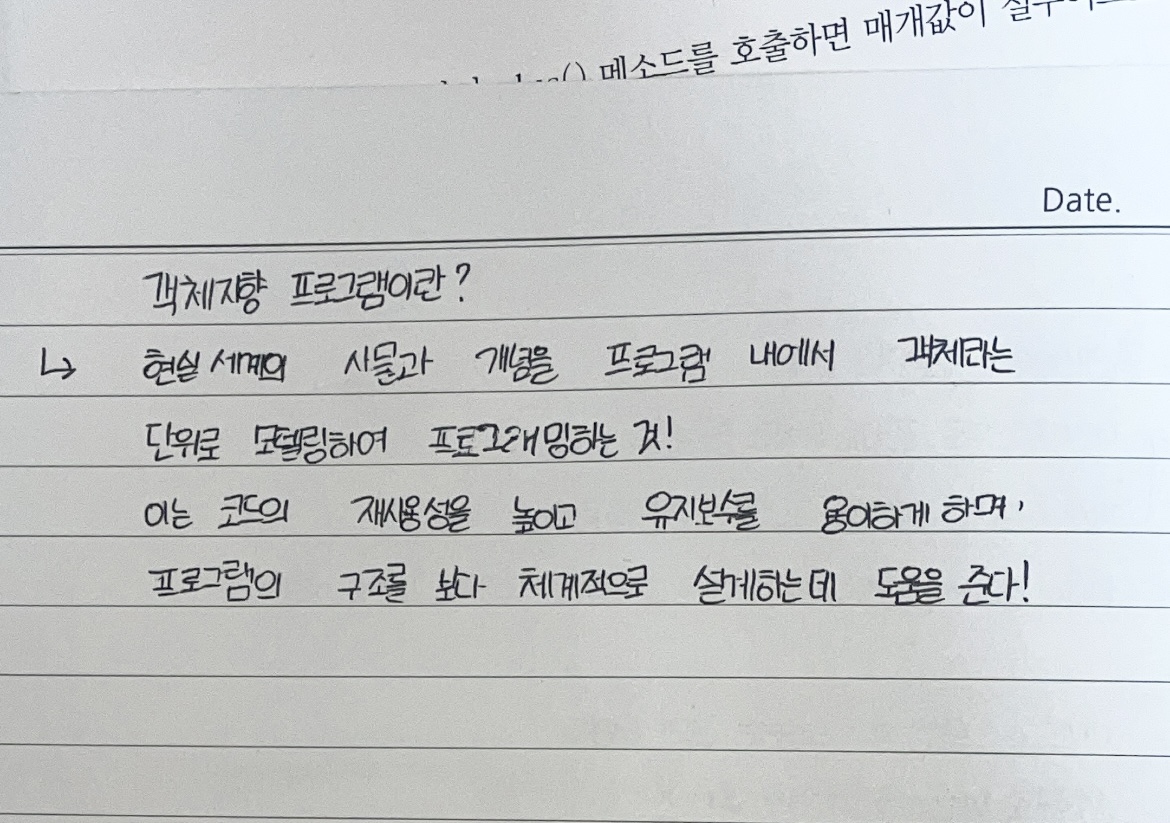 메소드를 호출하면 매개값이
Date.
객체지향 프로그램이란?
↳ 현실 세계의 사물과 개념을 프로그램 내에서 객체라는
단위로 모델링하여 프로그래밍하는 것!
이는 코드의 재사용성을 높이고 유지보수를 용이하게 하며,
프로그램의 구조를 보다 체계적으로 설계하는데 도움을 준다!